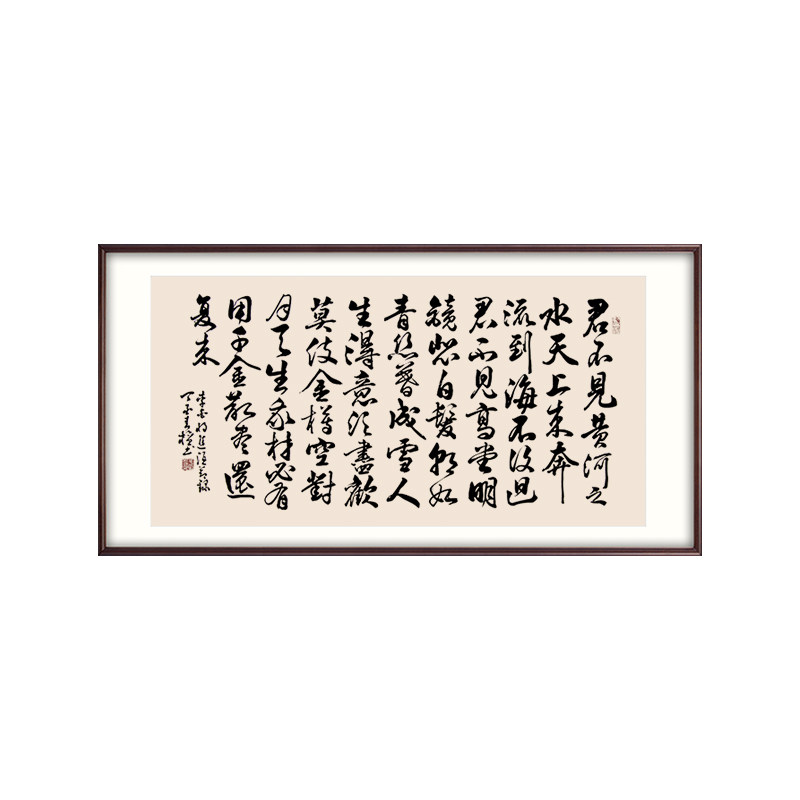 君不見黄河之
水天上来奔
流到海不復迴
君不見高堂明
鏡悲白髮朝如
青丝暮成雪人
生得意須盡歡
莫使金樽空對
月天生我材必有
用千金散尽還
复来
李白将进酒节錄